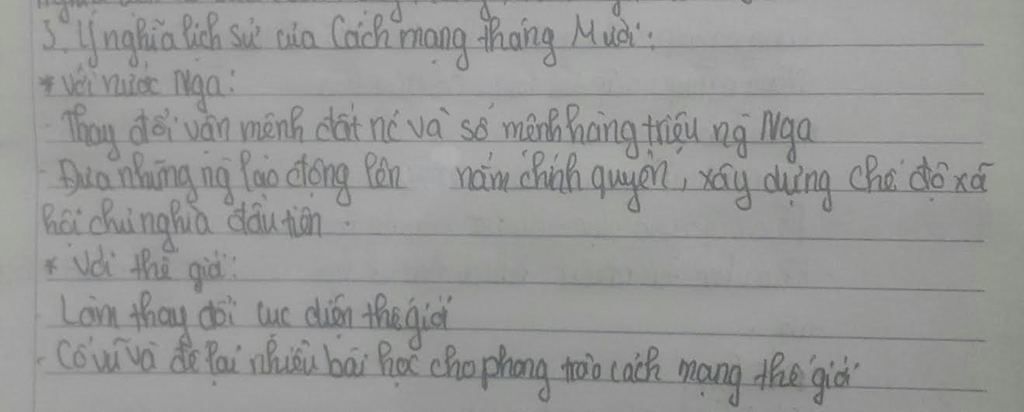 3. Ý nghĩa lịch sử của Cách mạng tháng Mười:
* Với nước Nga:
- Thay đổi vận mệnh đất nc và số mệnh hàng triệu ng Nga
- Đưa những ng lao động lên nắm chính quyền, xây dựng chế độ xã
hội chủ nghĩa đầu tiên.
* Với thế giới:
- Làm thay đổi cục diện thế giới
- Cổ vũ và để lại nhiều bài học cho phong trào cách mạng thế giới